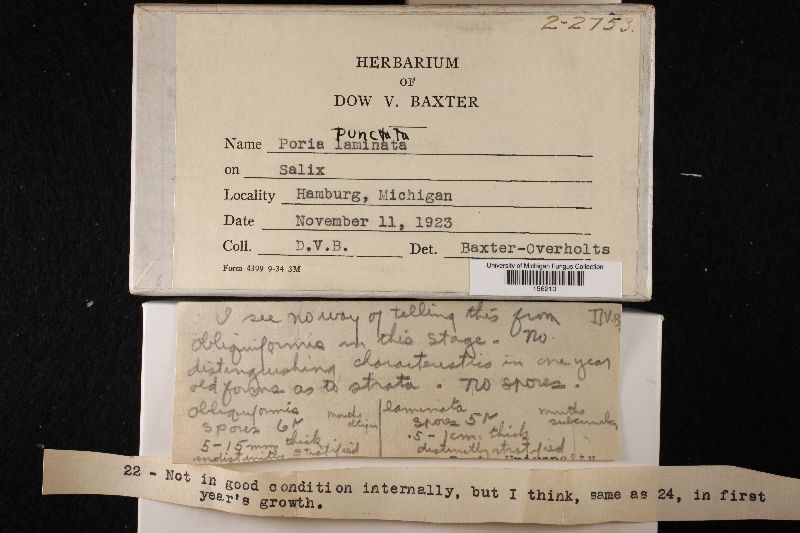 2-2753.
HERBARIUM
OF
DOW V. BAXTER
punctata
Name Poria laminata
on Salix
Locality Hamburg, Michigan
Date November 11, 1923
Coll. D.V.B. Det. Baxter-Overholts
Form 4399 9-34 3M
University of Michigan Fungus Collection
156210
I see no way of telling this from D.V.B.
obliquiformis in this stage. No
distinguishing characteristics in one year
old forms as to strata. No spores.
obliquiformis mouths laminata mouths
spores 6 spores 5 subcircular
5-15 mm thick .5-1 cm. thick
indistinctly stratified distinctly stratified
22 - Not in good condition internally, but I think, same as 24, in first
year's growth.